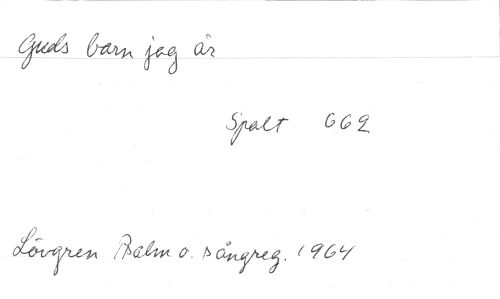 Guds barn jag är
Spalt 662
Lövgren Psalm o. sångreg. 1964